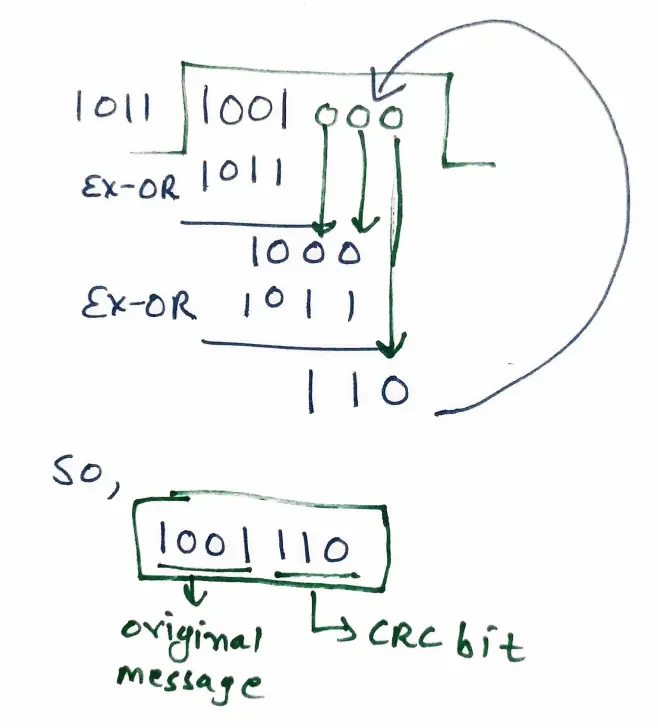 1011 1001 000
EX-OR 1011
1000
EX-OR 1011
110
So,
1001 110
original CRC bit
message